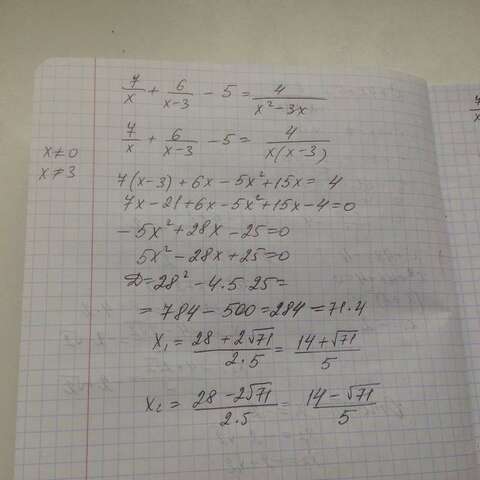 7/x + 6/(x-3) - 5 = 4/(x² - 3x)
x ≠ 0
x ≠ 3
7/x + 6/(x-3) - 5 = 4/(x(x-3))
7(x-3) + 6x - 5x² + 15x = 4
7x - 21 + 6x - 5x² + 15x - 4 = 0
-5x² + 28x - 25 = 0
5x² - 28x + 25 = 0
D = 28² - 4·5·25 =
= 784 - 500 = 284 = 71·4
x₁ = (28 + 2√71)/(2·5) = (14 + √71)/5
x₂ = (28 - 2√71)/(2·5) = (14 - √71)/5